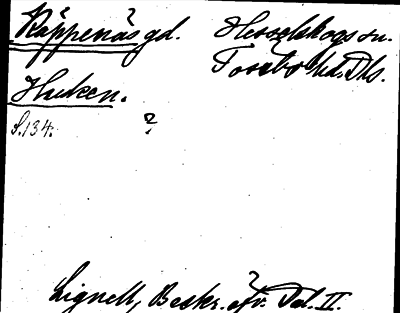 Käppenäs gd. Hesselskogs sn.
Tössbo hd. Dls.
Huken.
S. 134. ?
Lignell, Beskr. öfv. Dal. II.